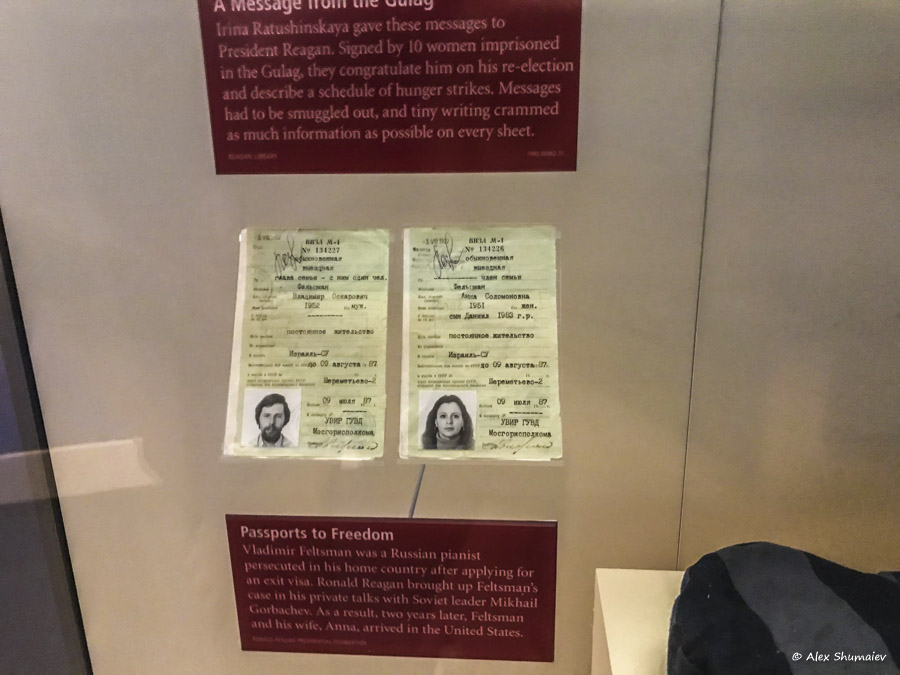 A Message from the Gulag
Irina Ratushinskaya gave these messages to
President Reagan. Signed by 10 women imprisoned
in the Gulag, they congratulate him on his re-election
and describe a schedule of hunger strikes. Messages
had to be smuggled out, and tiny writing crammed
as much information as possible on every sheet.
REAGAN LIBRARY
ВИЗА М-1
№ 134227
обыкновенная
выездная
глава семьи - с ним один чел.
Фельцман
Владимир Оскарович
1952 муж.
постоянное жительство
Израиль-СУ
до 09 августа 87.
Шереметьево-2
09 июля 87.
УВИР ГУВД
Мосгорисполкома
ВИЗА М-1
№ 134226
обыкновенная
выездная
член семьи
Фельцман
Анна Соломоновна
1951 жен.
сын Даниил 1983 г.р.
постоянное жительство
Израиль-СУ
до 09 августа 87.
Шереметьево-2
09 июля 87.
УВИР ГУВД
Мосгорисполкома
Passports to Freedom
Vladimir Feltsman was a Russian pianist
persecuted in his home country after applying for
an exit visa. Ronald Reagan brought up Feltsman's
case in his private talks with Soviet leader Mikhail
Gorbachev. As a result, two years later, Feltsman
and his wife, Anna, arrived in the United States.
RONALD REAGAN PRESIDENTIAL FOUNDATION
© Alex Shumaiev